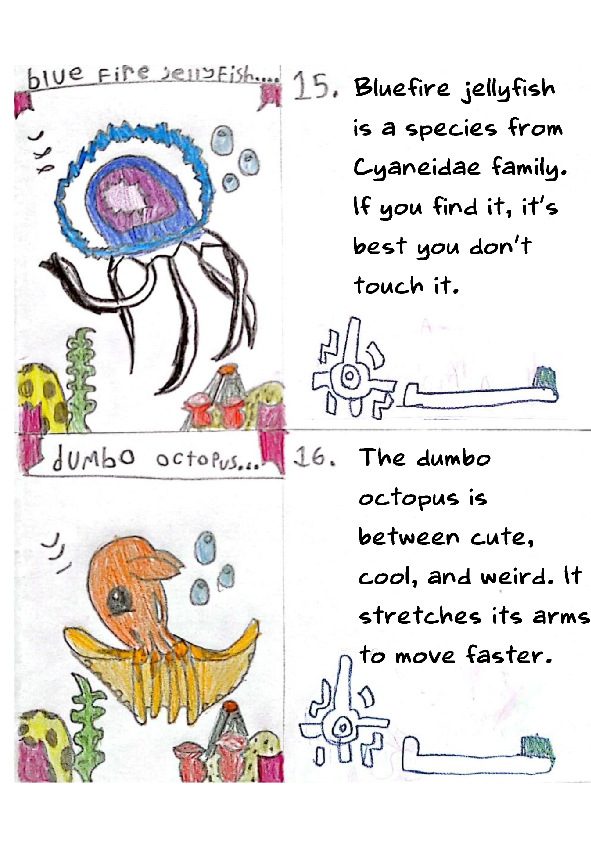 blue Fire JellyFish....
15. Bluefire jellyfish
is a species from
Cyaneidae family.
If you find it, it's
best you don't
touch it.
dumbo octopus...
16. The dumbo
octopus is
between cute,
cool, and weird. It
stretches its arms
to move faster.